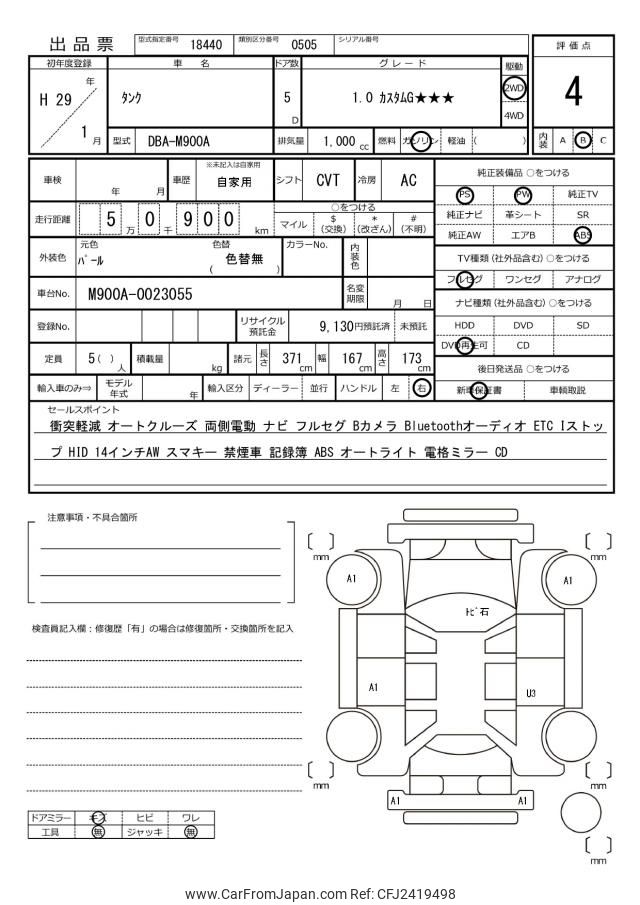 出品票 型式指定番号 18440 類別区分番号 0505 シリアル番号
評価点
4
内装 A B C
初年度登録 車名 ドア数 グレード 駆動
H 29 年 1 月 タンク 5 D 1.0 カスタムG★★★ 2WD 4WD
型式 DBA-M900A 排気量 1,000 cc 燃料 ガソリン 軽油 ( )
車検 年 月 車歴 ※未記入は自家用 自家用 シフト CVT 冷房 AC
走行距離 5 万 0 千 9 0 0 km ○をつける
マイル $ (交換) * (改ざん) # (不明)
外装色 元色 パール 色替 ( 色替無 ) カラーNo. 内装色
車台No. M900A-0023055 名変期限 月 日
登録No. リサイクル預託金 9,130円預託済 未預託
定員 5( ) 人 積載量 kg 諸元 長さ 371 cm 幅 167 cm 高さ 173 cm
輸入車のみ⇒ モデル年式 年 輸入区分 ディーラー 並行 ハンドル 左 右
純正装備品 ○をつける
PS PW 純正TV
純正ナビ 革シート SR
純正AW エアB ABS
TV種類(社外品含む) ○をつける
フルセグ ワンセグ アナログ
ナビ種類(社外品含む) ○をつける
HDD DVD SD
DVD再生可 CD
後日発送品 ○をつける
新車保証書 車輌取説
セールスポイント
衝突軽減 オートクルーズ 両側電動 ナビ フルセグ Bカメラ Bluetoothオーディオ ETC Iストッ
プ HID 14インチAW スマキー 禁煙車 記録簿 ABS オートライト 電格ミラー CD
注意事項・不具合箇所
検査員記入欄:修復歴「有」の場合は修復箇所・交換箇所を記入
ドアミラー キズ ヒビ ワレ
工具 無 ジャッキ 無
mm
mm
A1
A1
トビ石
A1
U3
mm
mm
A1
A1
mm
www.CarFromJapan.com Ref: CFJ2419498